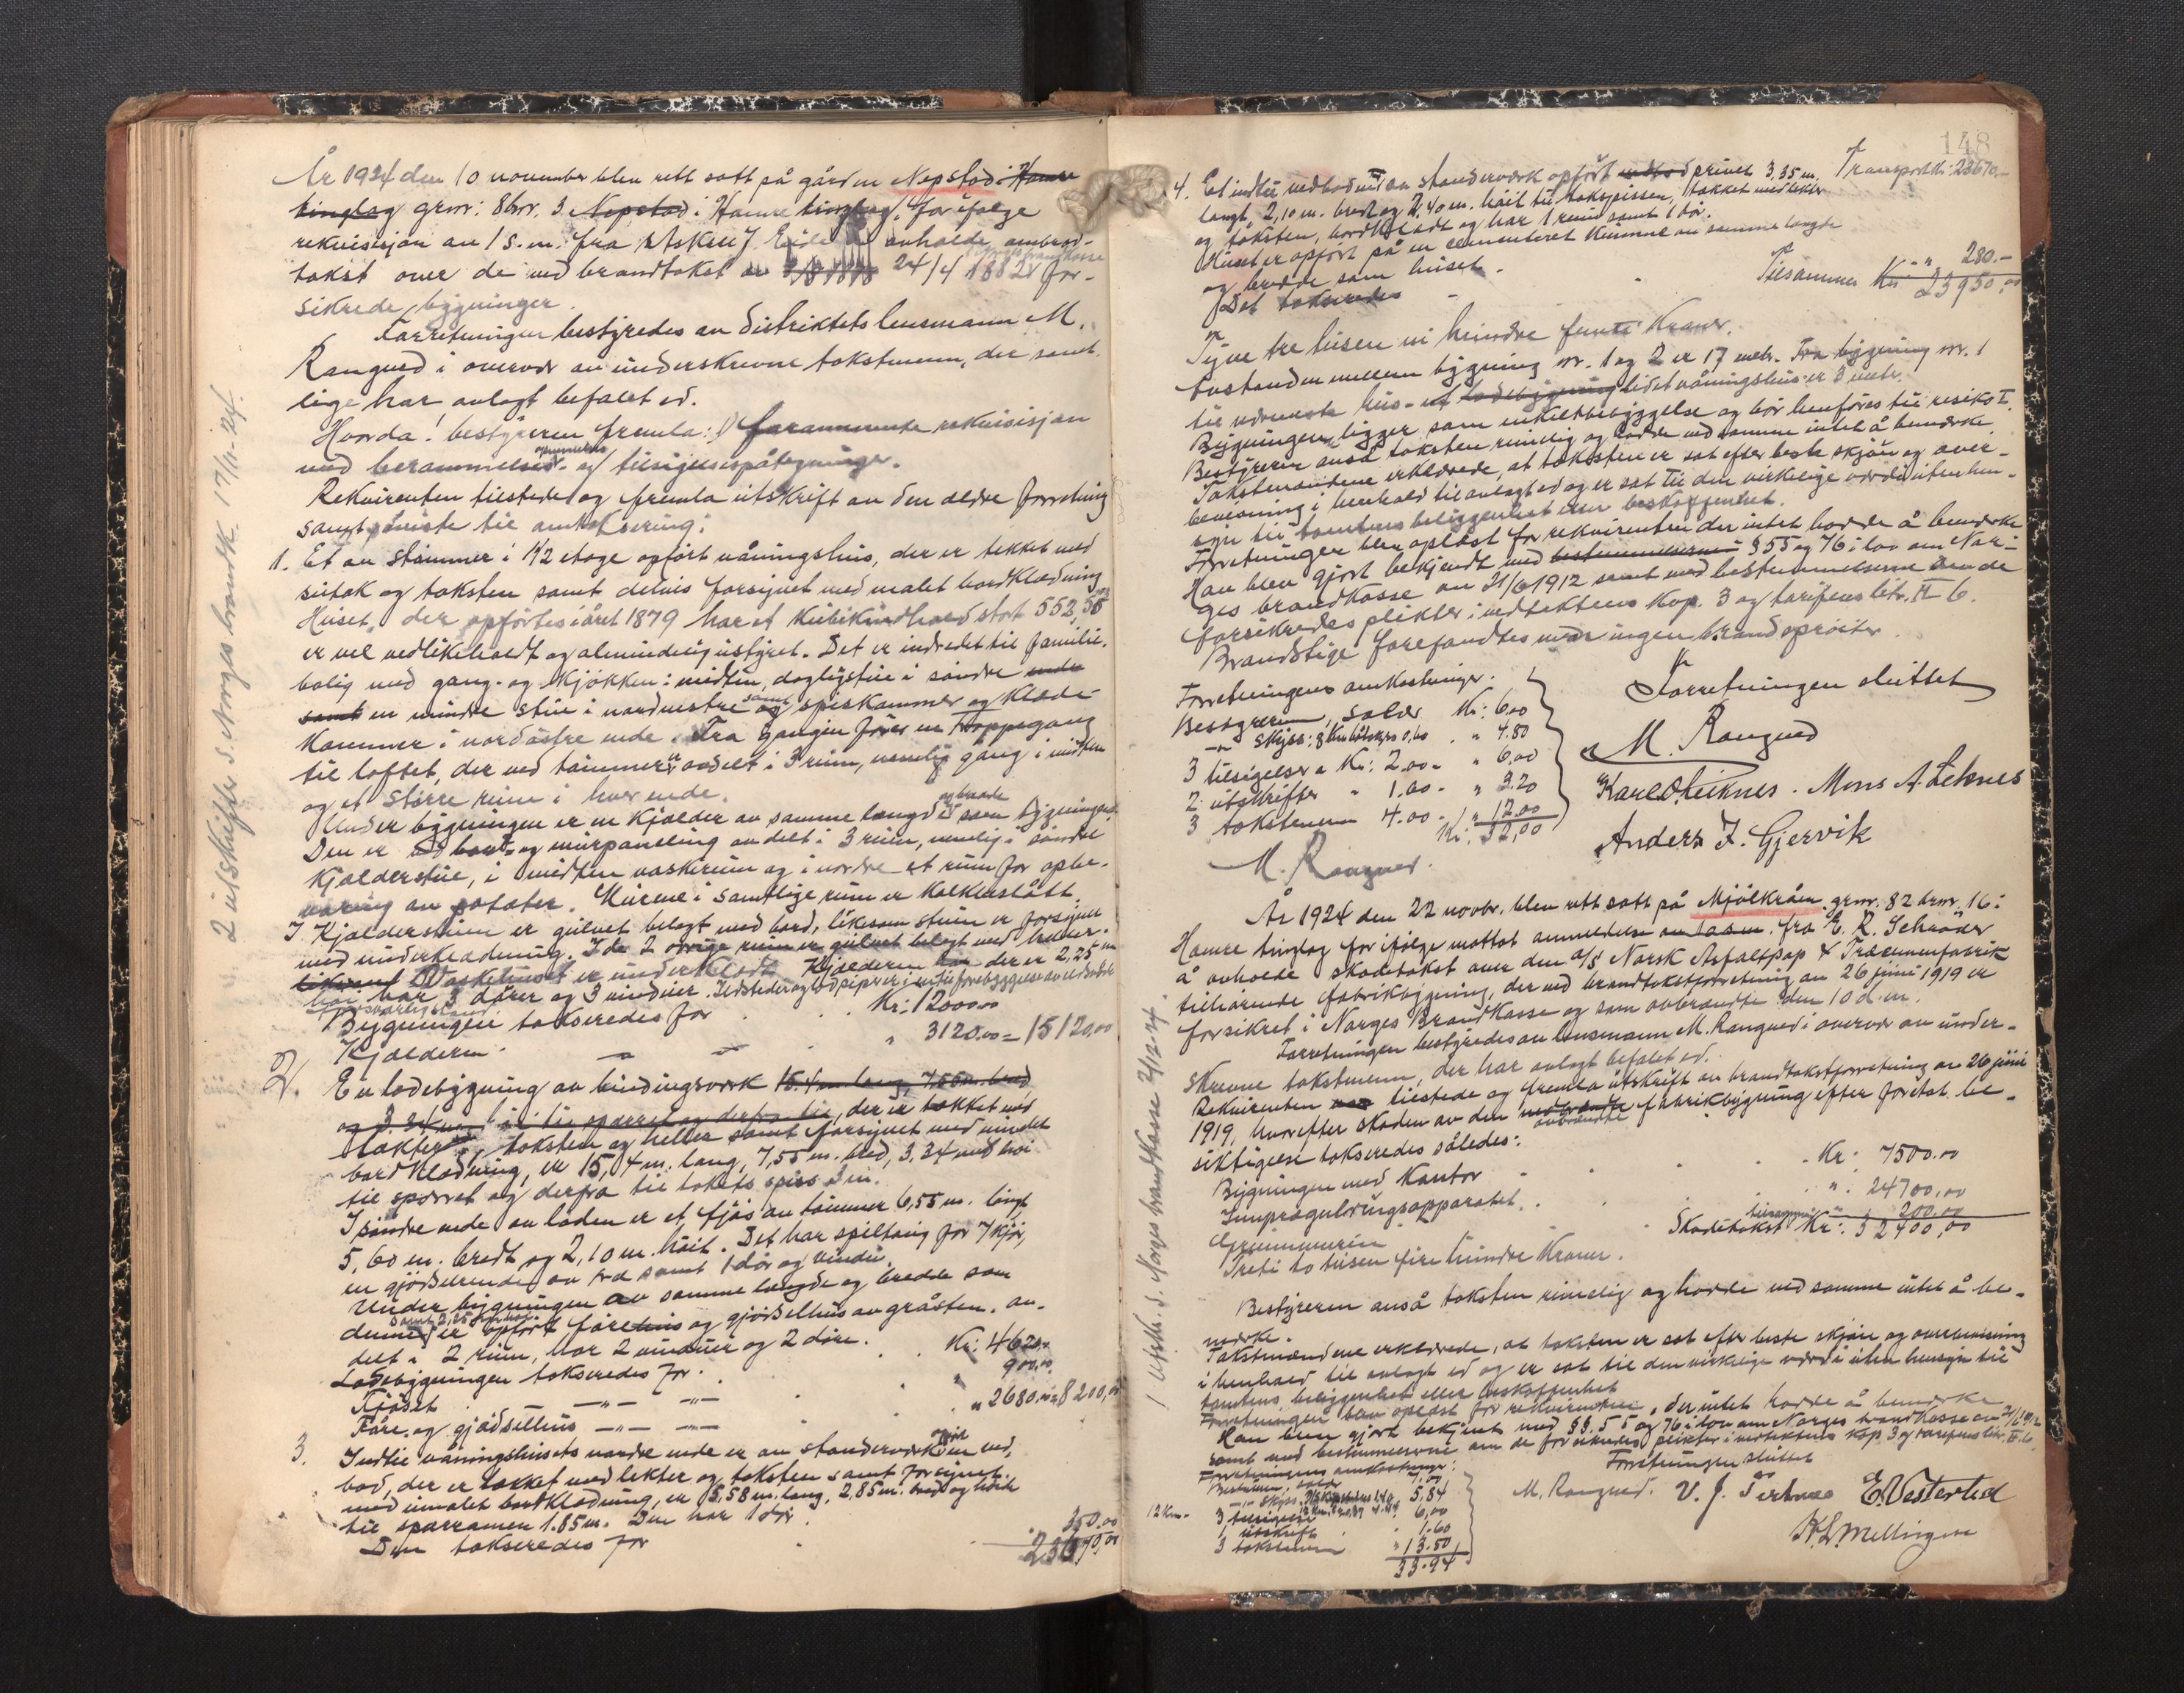 År 1924 den 10 november blev rett satt på gården Nepstad i Hamre
tinglag grnr: 8 bnr. 3. Nepstad i Hamre tinglag, for ifølge
rekvisisjon av 1 s.m. fra Askell J. Eide å avholde ombrand-
takst over de ved brandtakst av 24/4 1882 for-
sikrede bygninger.
Forretningen bestyredes av distriktets lensmann M.
Rangved i overvær av underskrevne takstmenn, der samt-
lige har avlagt befalet ed.
Hvorda! bestyreren fremla: 1) forannevnte rekvisisjon
med berammelses- og tilsigelsespåtegninger.
Rekvirenten tilstede og fremla utskrift av den eldre forretning
samt påviste til omtaksering:
1. Et av tømmer i 1 1/2 etage opført våningshus, der er tekket med
sutak og taksten samt delvis forsynet med malet bordklædning
Huset, der opførtes i året 1879 har et kubikindhold stort 552,55
er vel vedlikeholdt og almindelig utstyret. Det er indredet til familie-
bolig med gang- og kjøkken i midten, dagligstue i søndre ende
samt en mindre stue i nordvestre samt spiskammer og klæde-
kammer i nordøstre ende. Fra gangen fører en trappegang
til loftet, der ved tømmer er avdelt i 3 rum, nemlig gang i midten
og et større rum i hver ende.
Under bygningen er en kjælder av samme længde og bredde som bygningen.
Den er ved bord- og murpaneling avdelt i 3 rum, nemlig i søndre
kjælderstue, i midten vaskerum og i nordre et rum for opbe-
varing av poteter. Murene i samtlige rum er kalkslått.
I kjælderstuen er gulvet belagt med bord, liksom stuen er forsynet
med underklædning. I de 2 øvrige rum er gulvet belagt med heller.
Vaskerummet er underklædt. Kjælderen der er 2,25 m
høi har 3 dører og 3 vinduer. Ildsteder og
forsvarlig stand
Bygningen takseredes for Kr: 12000.00
Kjælderen " 3120.00 = 15120,00
2. En ladebygning av bindingsverk 15.4 m lang, 7,55 m. bred
og 3.34 m. høi til sparret og derfra til, der er tækket med
lakter, taksten og heller samt forsynet med umalet
bordklædning, er 15,4 m. lang, 7,55 m. bred, 3,34 met høi
til sparret og derfra til takets spiss 3 m.
I søndre ende av laden er et fjøs av tømmer 6,55 m. langt
5,60 m. bredt og 2,10 m. høit. Det har spiltaug for 7 kjør,
en gjødselrende av træ samt 1 dør og vindu.
Under bygningen av samme længde og bredde som
denne er opført fårehus og gjødselhus av gråsten, av-
delt i 2 rum, har 2 vinduer og 2 døre.
Ladebygningen takseredes for Kr: 4620.00
Fjøset —"— —"— 900,00
Fåre- og gjødselhus —"— —"— " 2680.00 = 8200,00
3. Indtil våningshusets nordre ende er av standerverk opført en ved-
bod, der er tækket med lekter og taksten samt forsynet
med umalet bordklædning, er 5,58 m. lang, 2,85 m. bred og høide
til sparramen 1.85 m. Den har 1 dør.
Den takseredes for 350.00
23670,00
2 utskrifter s. Norges brandk. 17/11-24.
148
Transport kr: 23670,-
4. Et indtil vedboden av standerverk opført privet 3,35 m.
langt, 2,10 m. bredt og 2,40 m. høit til takspissen, tækket med lekter
og taksten, bordklædt og har 1 rum samt 1 dør.
Huset er opført på en cementeret kumme av samme længde
og bredde som huset.
Det takseredes " 280.-
Tilsammen Kr: 23950,00
Tyve tre tusen ni hundre femti kroner.
Avstanden mellem bygning nr. 1 og 2 er 17 metr. Fra bygning nr. 1
til nærmeste hus - et lidet våningshus er 3 metr.
Bygningen ligger som enkeltbebyggelse og bør henføres til risiko I.
Bestyreren anså taksten rimelig og hadde ved samme intet å bemerke.
Takstmændene erklærede, at taksten er sat efter beste skjøn og over-
bevisning i henhold til avlagt ed og er sat til den virkelige værdi uten hen-
syn til tomtens beliggenhet eller beskaffenhet.
Forretningen blev oplæst for rekvirenten der intet hadde å bemerke
Han blev gjort bekjendt med bestemmelserne i § 55 og 76 i lov om Nor-
ges brandkasse av 21/6 1912 samt med bestemmelserne om de
forsikredes plikter i vedtektens kap. 3 og tarifens litr. II 6.
Brandstige forefandtes men ingen brandsprøiter.
Forretningens omkostninger. Forretningen sluttet
Bestyreren, salær Kr: 6.00
—"— skyss: 8 km båtskyss 0,60 " 4.80
3 tilsigelser a Kr: 2.00 - " 6,00
2 utskrifter " 1.60 - " 3.20
3 takstmenn 4.00 - " 12.00
Kr: 32,00
M. Rangved.
M. Rangved
Karl O. Leiknes. Mons A. Leknes
Anders J. Gjervik
År 1924 den 22 novbr. blev rett satt på Mjølkråen grnr. 82 brnr. 16 i
Hamre tinglag for ifølge mottat anmeldelse fra E. R. Schrøder
å avholde skadetakst over den A/S Norsk Asfaltpap & Træcementfabrik
tilhørende fabrikbygning, der ved brandtakstforretning av 26 juni 1919 er
forsikret i Norges Brandkasse og som avbrandte den 10 d.m.
Forretningen bestyredes av lensmann M. Rangved i overvær av under-
skrevne takstmenn, der har avlagt befalet ed.
Rekvirenten tilstede og fremla utskrift av brandtakstforretning av 26 juni
1919, hvorefter skaden av den avbrændte fabrikbygning efter foretat be-
siktigelse takseredes således:
Bygningen med kontor Kr: 7500.00
Impregneringsapparatet " 24700,00
Grunnmuren " 200.00
Skadetakst tilsammen Kr: 32400,00
Treti to tusen fire hundre kroner.
Bestyreren anså taksten rimelig og hadde ved samme intet å be-
merke.
Takstmændene erklærede, at taksten er sat efter beste skjøn og overbevisning
i henhold til avlagt ed og er sat til den virkelige værdi uten hensyn til
tomtens beliggenhet eller beskaffenhet
Forretningen blev oplæst for rekvirenten, der intet hadde å bemerke
Han blev gjort bekjent med §§ 55 og 76 i lov om Norges brandkasse av 21/6 1912
samt med bestemmelserne om de forsikredes plikter i vedtektens kap. 3 og tarifens litr. II 6.
Forretningens omkostninger: Forretningen sluttet
Bestyreren, salær 7.00
—"— skyss 5,84
12 km. 3 tilsigelser 6,00
1 utskrift " 1.60
3 takstmenn " 13.50
33.94
M. Rangved. V. J. E. Vestertid
K. L. Mellingen
1 utskr. s. Norges brandkasse 2/12-24.